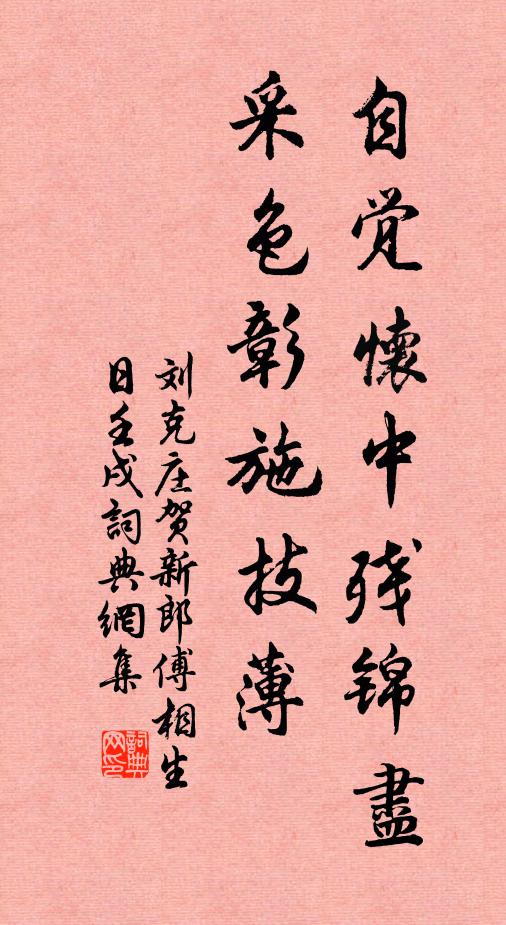 自觉懷中残锦盡
采色彰施技薄
刘克庄贺新郎傅相生
日壬戌詞典網集
詞典网印